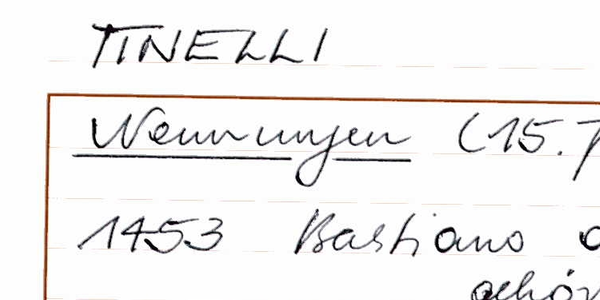 TINELLI
Nennungen (15.
1453 Bastiano
gehör